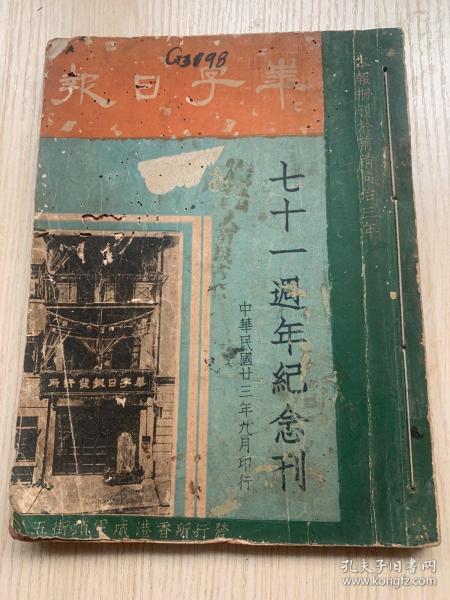 華字日報
本報刱刊於前清同治三年
七十一週年紀念刊
中華民國廿三年九月印行
華字日報發行所
發行所香港威靈頓街五
孔夫子旧书网
www.kongfz.com